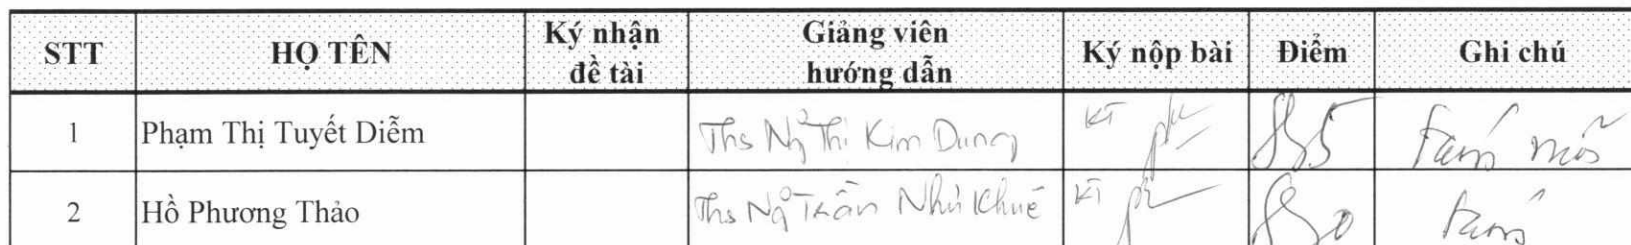 STT HỌ TÊN Ký nhận đề tài Giảng viên hướng dẫn Ký nộp bài Điểm Ghi chú
1 Phạm Thị Tuyết Diễm Ths Ng̃ Thị Kim Dung KT 8,5 Tám rưỡi
2 Hồ Phương Thảo Ths Ng̃ Trần Như Khuê KT 8,0 Tám